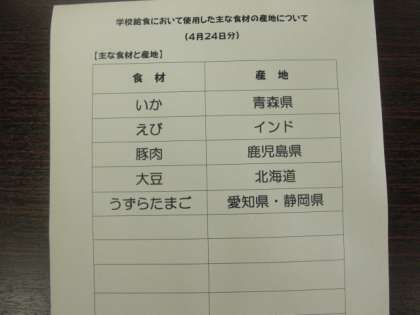 学校給食において使用した主な食材の産地について
(4月24日分)
【主な食材と産地】
食材 産地
いか 青森県
えび インド
豚肉 鹿児島県
大豆 北海道
うずらたまご 愛知県・静岡県